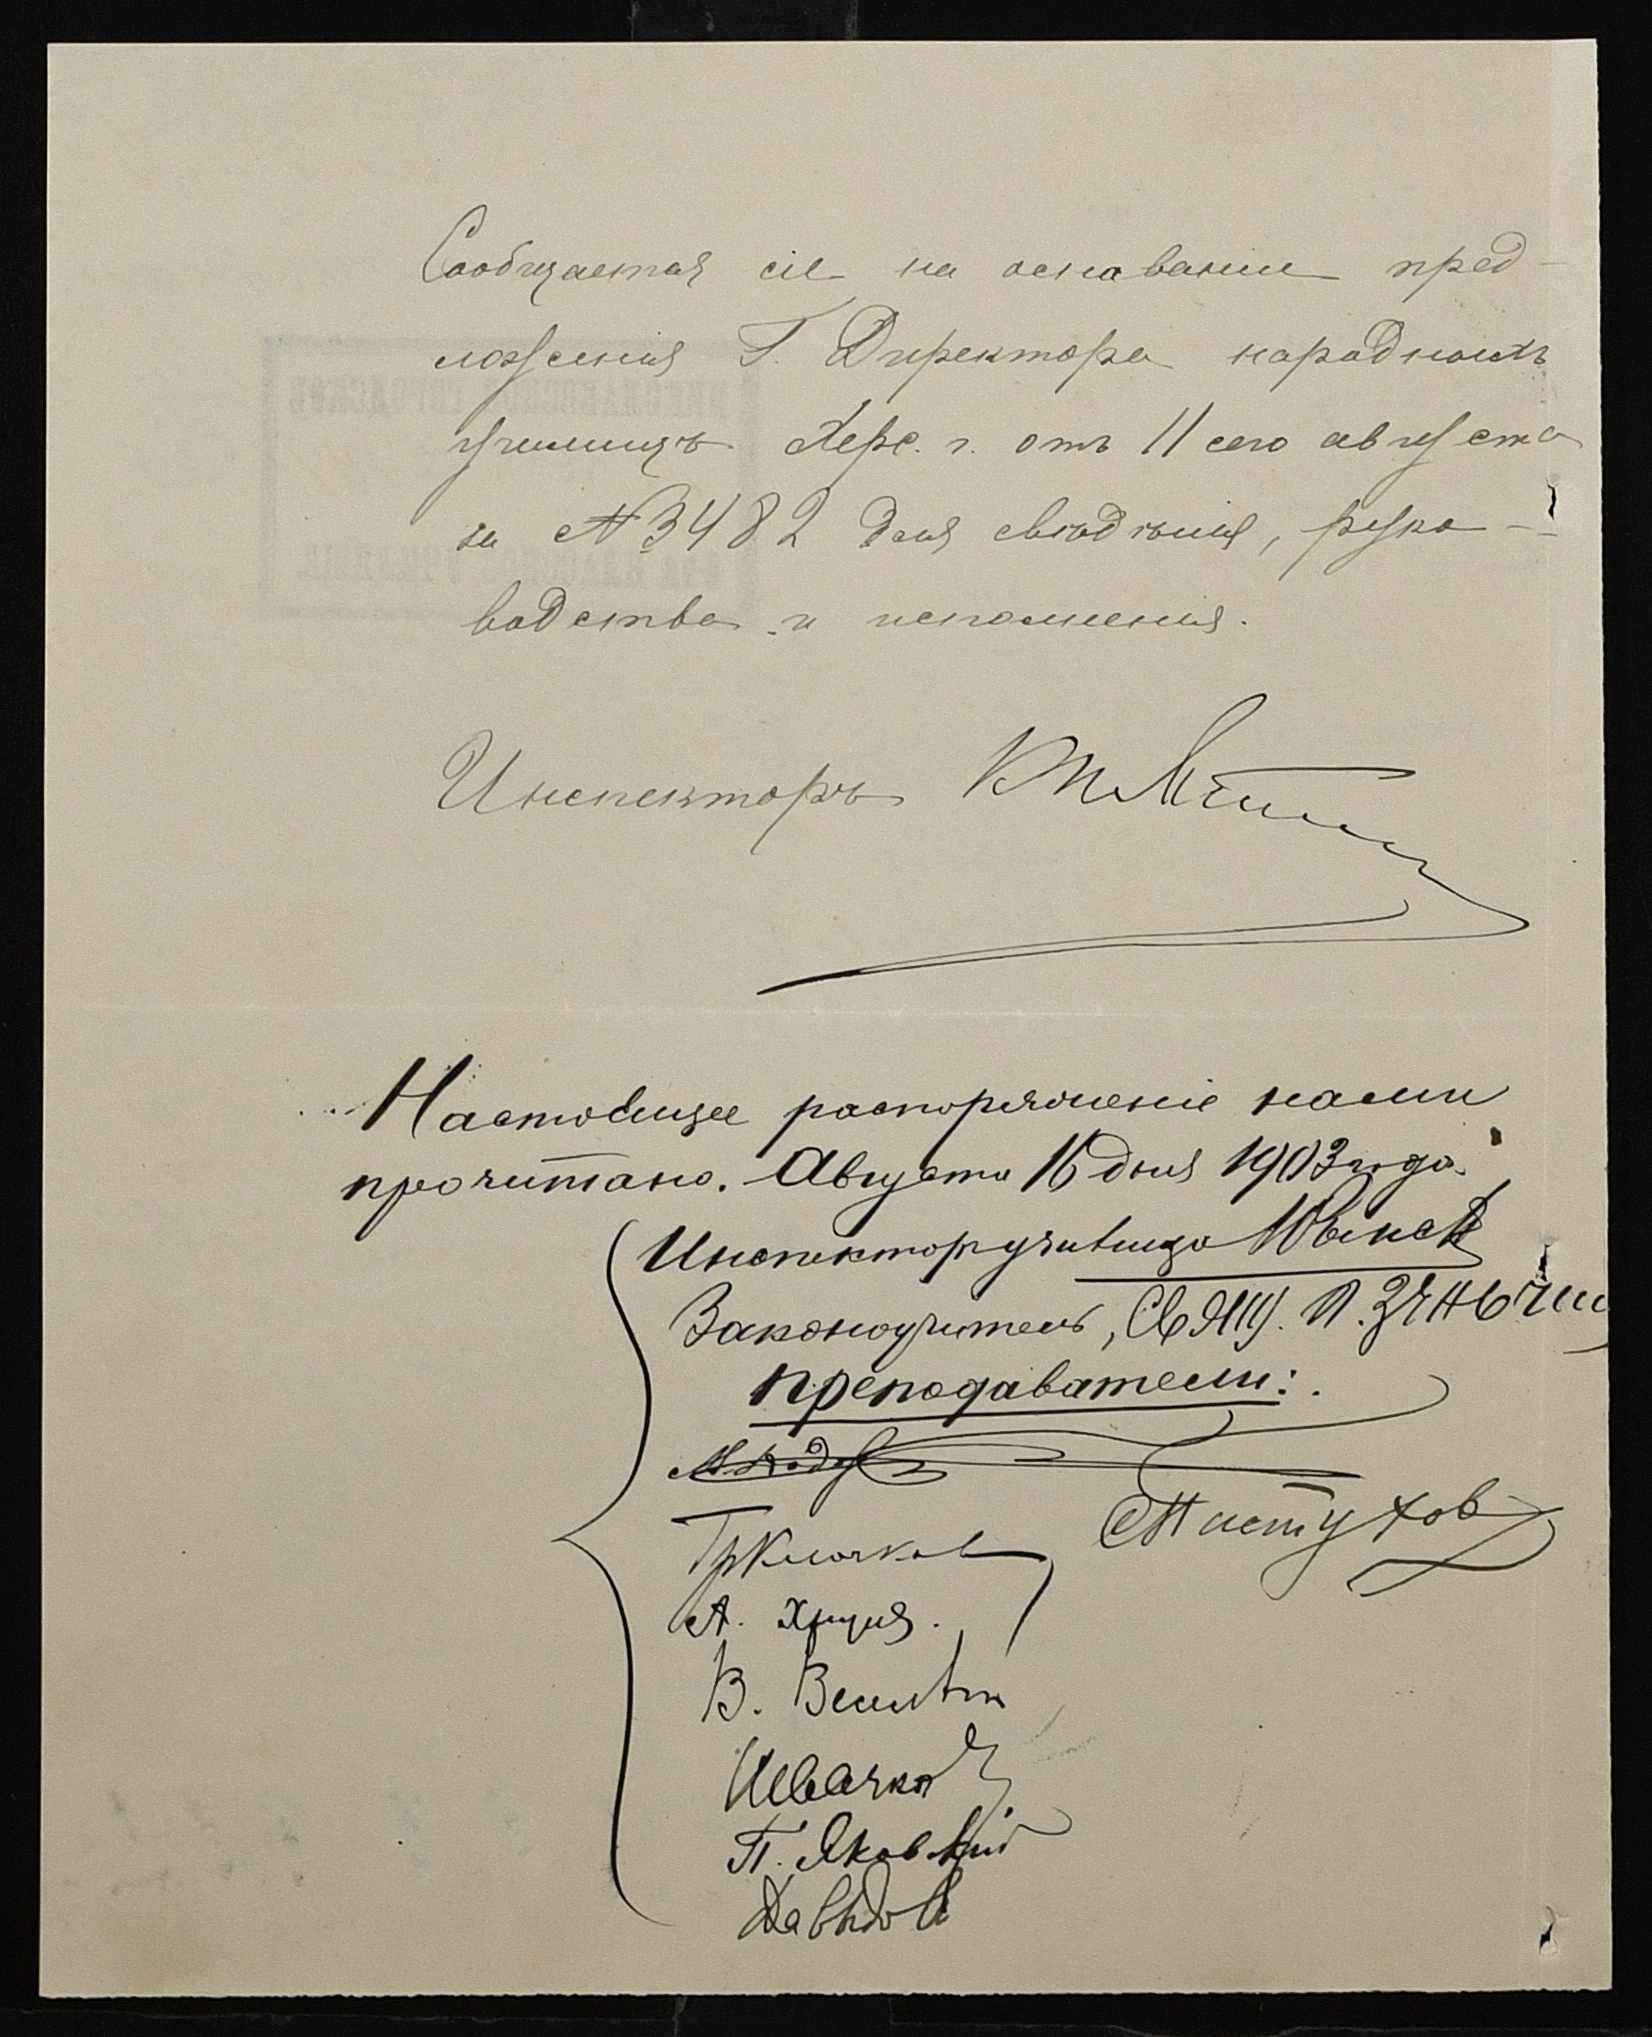 Сообщается сіе на основаніи пред-
ложенія Г. Директора народныхъ
училищъ Херс. г. отъ 11 сего августа
за № 3482 для свѣдѣнія, руко-
водства и исполненія.
Инспекторъ
Настоящее распоряженіе нами
прочитано. Августа 16 дня 1903 года.
Инспекторъ училища
Законоучитель, Свящ. П.
Преподаватели:
Пастухов
Гр Клочков
А.
В.
Швачко
П. Яковкий
Давыдов